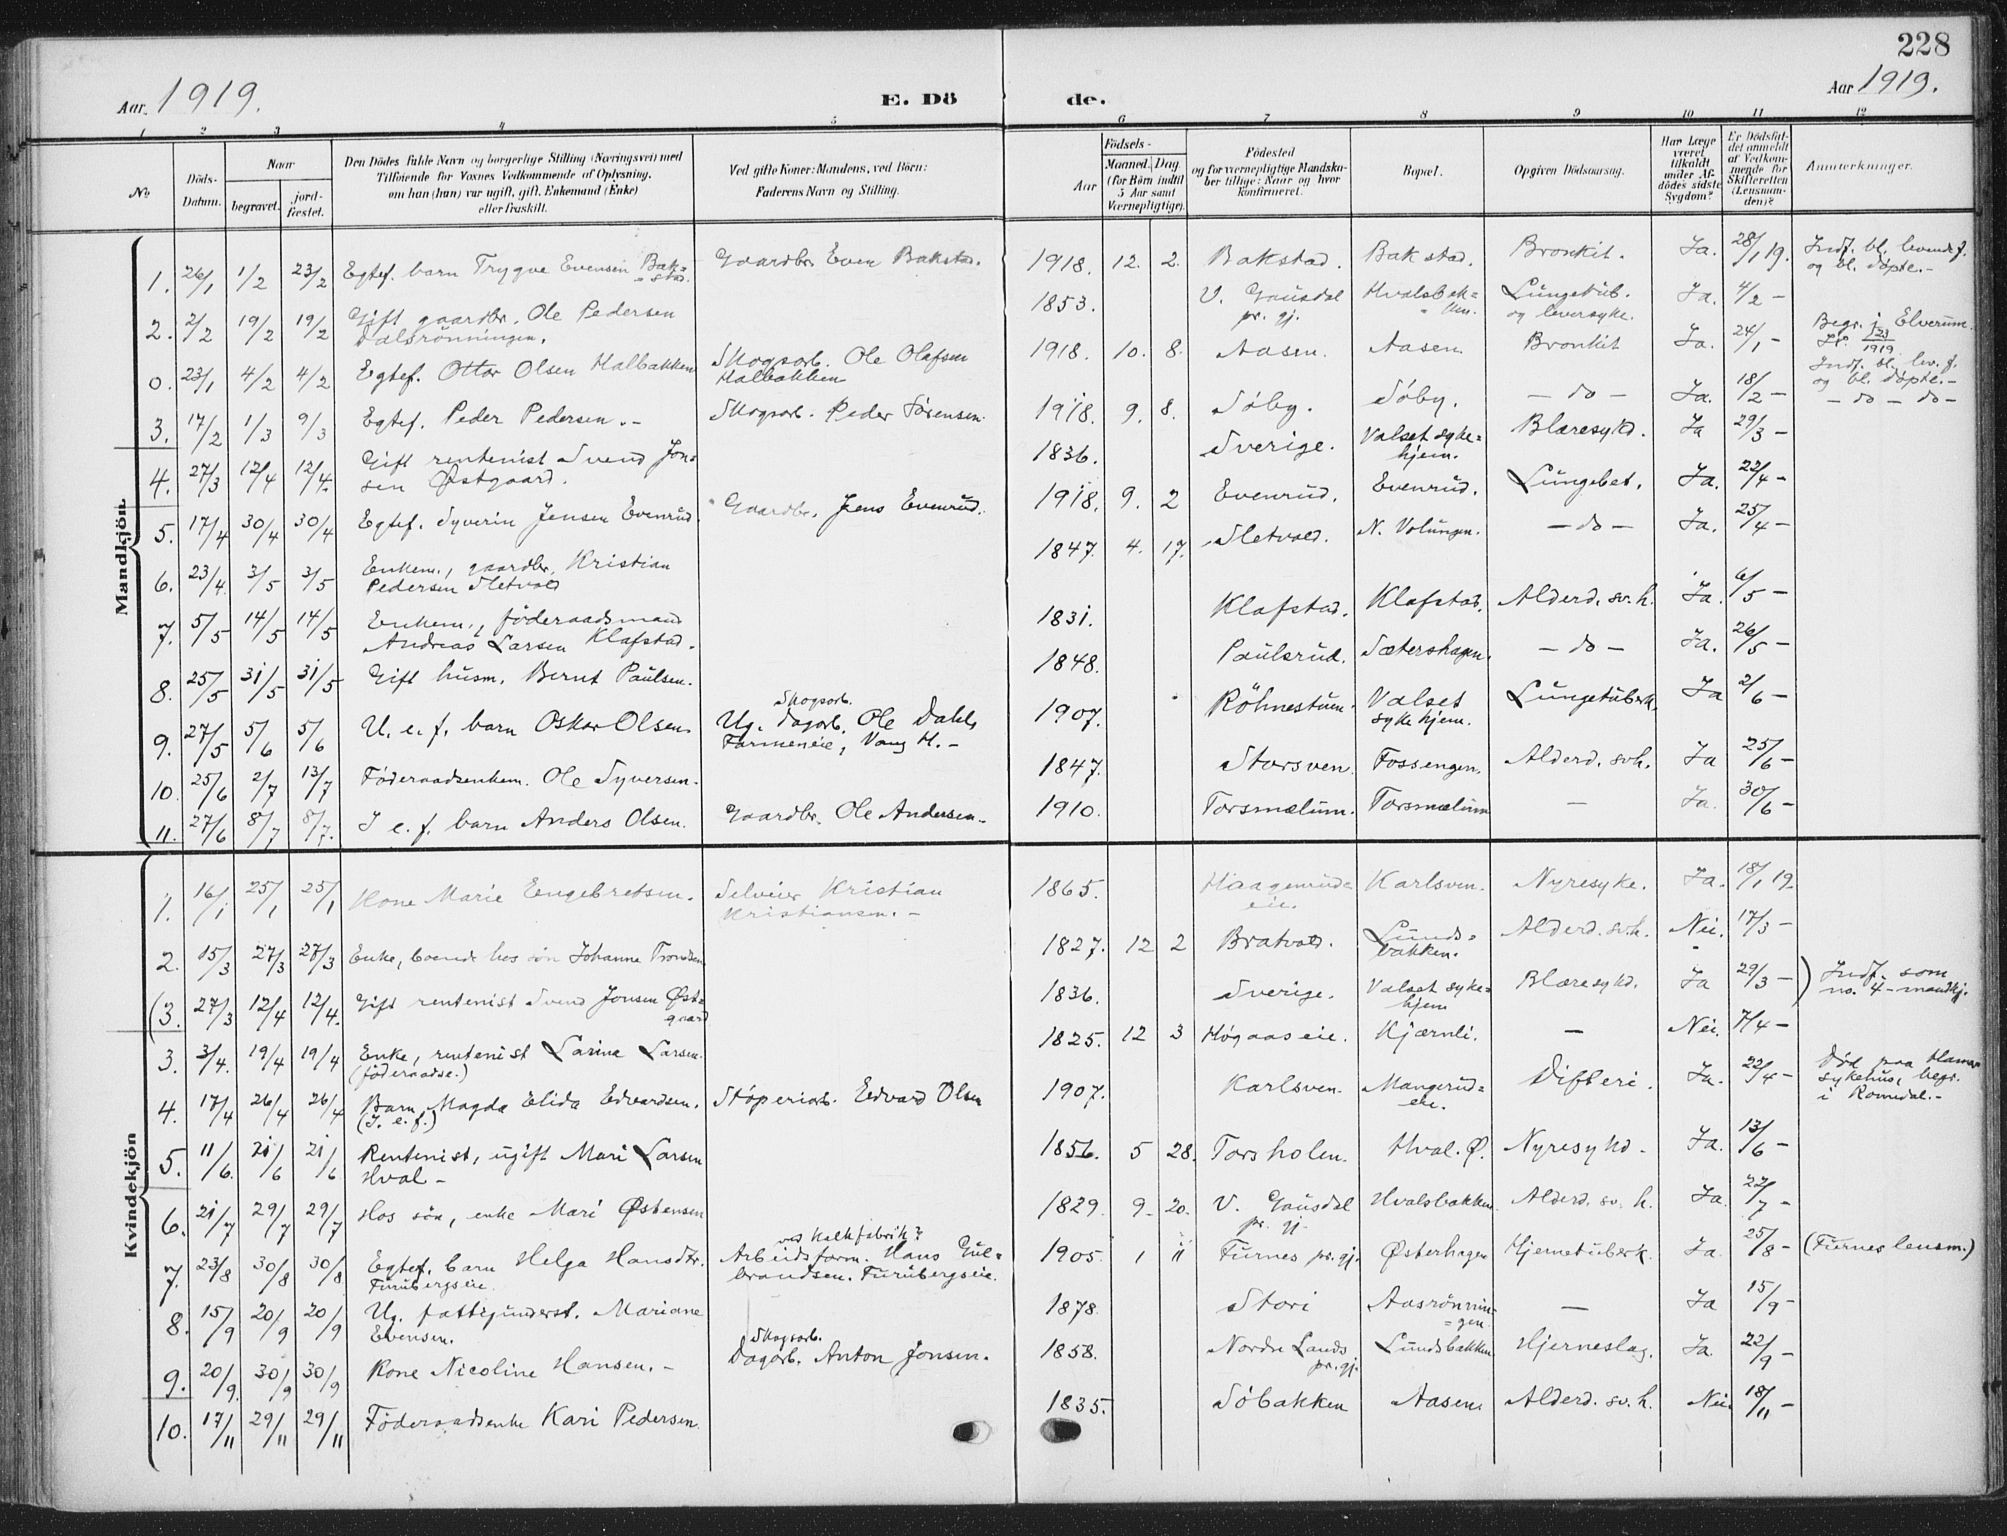 228
Aar. 1919.
E. Dö de.
Aar 1919.
1 2 3 4 5 6 7 8 9 10 11 12
No
Döds-Datum.
Naar
begravet.
jord-fæstet.
Den Dödes fulde Navn og borgerlige Stilling (Næringsvei) med
Tilföiende for Voxnes Vedkommende af Oplysning,
om han (hun) var ugift, gift, Enkemand (Enke)
eller fraskilt.
Ved gifte Koner: Mandens, ved Börn:
Faderens Navn og Stilling.
Födsels-
Aar
Maaned. Dag.
(for Börn indtil
5 Aar samt
Værnepligtige).
Födested
og for værnepligtige Mandska-
ber tillige: Naar og hvor
konfirmeret.
Bopæl.
Opgiven Dödsaarsag.
Har Læge
været
tilkaldt
under Af-
dödes sidste
Sygdom?
Er Dödsfal-
det anmeldt
af Vedkom-
mende for
Skifteretten
(Lensman-
den)?
Anmerkninger.
Mandkjön.
1. 26/1 1/2 23/2 Egtef. barn Trygve Evensen Bak=stad. Gaardbr. Even Bakstad. 1918. 12. 2. Bakstad. Bakstad. Bronkit. Ja. 28/1 19. Indf. bl. levende f. og bl. døpte.-
2. 2/2 19/2 19/2 Gift gaardbr. Ole Pedersen Dalsrönningen. 1853. V. Gausdal pr. gj. Hvalsbak=ken. Lungetub. og leversyke. Ja. 4/2 -
0. 23/1 4/2 4/2 Egtef. Ottar Olsen Halbakken Skogsarb. Ole Olafsen Halbakken 1918. 10. 8. Aasen. Aasen. Bronkit Ja. 24/1 - Begr. i Elverum. 1919 Indf. bl. lev. f. og bl. døpte.-
3. 17/2 1/3 9/3 Egtef. Peder Pedersen.- Skogsarb. Peder Sörensen. 1918. 9. 8. Söby. Söby. - do - Ja. 18/2 - - do - do -
4. 27/3 12/4 12/4. Gift rentenist Svend Jon=sen Østgaard. 1836. Sverige. Valset syke=hjem. Blæresykd. Ja 29/3 -
5. 17/4 30/4 30/4 Egtef. Syverin Jensen Evenrud. Gaardbr. Jens Evenrud. 1918. 9. 2 Evenrud. Evenrud. Lungebet. Ja. 22/4 -
6. 23/4 3/5 3/5 Enkem., gaardbr. Kristian Pedersen Sletvold 1847. 4. 17. Sletvold. N. Volungen. - do - Ja. 25/4 -
7. 5/5 14/5 14/5 Enkem., föderaadsmand Andreas Larsen Klafstad. 1831. Klafstad. Klafstad. Alderd. sv.h. Ja. 6/5 -
8. 25/5 31/5 31/5 Gift husm. Bernt Paulsen. 1848. Paulsrud. Sætershagen. - do - Ja. 26/5 -
9. 27/5 5/6 5/6 U. e. f. barn Oskar Olsen. Skogsarb. Ug. dagarb. Ole Dahl, Farmeneie, Vang H. - 1907. Röhnestuen. Valset sykehjem. Lungetuberk. Ja 2/6 -
10. 25/6 2/7 13/7 Föderaadsenkem. Ole Syversen. 1847. Storsven. Fossengen. Alderd. svh. Ja 25/6 -
11. 27/6 8/7 8/7. I e. f. barn Anders Olsen. Gaardbr. Ole Andersen. 1910. Torsmælum. Torsmælum - Ja. 30/6 -
Kvindekjön
1. 16/1 25/1 25/1 Kone Marie Engebretsen. Selveier Kristian Kristiansen. - 1865. Haagenrud=eie. Karlsven. Nyresyke. Ja. 18/1 19.
2. 15/3 27/3 27/3 Enke, boende hos sön Johanne Trondsen 1827. 12 2 Bratvold. Lunds=bakken. Alderd. sv.h. Nei. 17/3 -
(3. 27/3 12/4 12/4. Gift rentenist Svend Jonsen Øst=gaard 1836. Sverige. Valset syke=hjem Blæresykd. Ja 29/3 - ) Indf. som no. 4 - mandkj.
3. 3/4. 19/4 19/4 Enke, rentenist Larine Larsen. (föderaadse.) 1825. 12 3 Høgaaseie. Kjærnli. - Nei. 7/4 -
4. 17/4 26/4 26/4 Barn Magda Elida Edvardsen. (I. e. f.) Støperiarb. Edvard Olsen 1907. Karlsven. Mangerud=eie. Difteri. Ja. 22/4 - Død paa Hamar sykehus, begr. i Romedal.-
5. 11/6 21/6 21/6 Rentenist, ugift Mari Larsen Hval - 1856. 5 28. Torsholen. Hval. Ø. Nyresykd. Ja. 13/6 -
6. 21/7 29/7 29/7 Hos sön, enke Mari Østensen 1829. 9. 20. V. Gausdal pr. gj. Hvalsbakken. Alderd. sv. h. Ja. 22/7 -
7. 23/8 30/8 30/8 Egtef. barn Helga Hansdtr. Furubergseie. ved Kalkfabrik? Arbeidsform. Hans Gul=brandsen. Furubergseie. 1905. 1 11 Furnes pr. gj. Østerhagen Hjernetuberk. Ja. 25/8 - (Furnes lensm.)
8. 15/9 20/9 20/9 Ug. fattigunderst. Mariane Evensen. 1878. Stori Aasrönnin=gen - Ja 15/9 -
9. 20/9. 30/9 30/9 Kone Nicoline Hansen. - Skogsarb. Dagarb. Anton Jonsen. 1858. Nordre Lands pr. gj. Lundsbakken Hjerneslag. Ja. 22/9 -
10. 17/11 29/11 29/11 Föderaadsenke Kari Pedersen. 1835. Söbakken Aasen Alderd. sv. h. Nei. 18/11 -